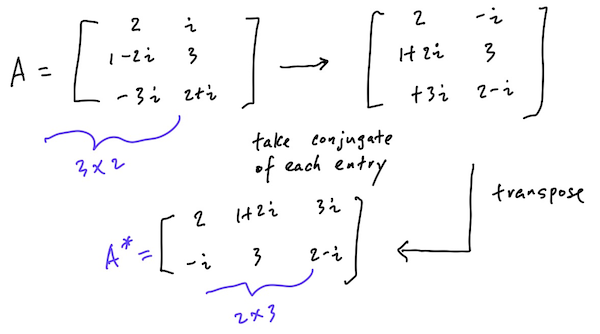 A = [ 2 i
1-2i 3
-3i 2+i ] → [ 2 -i
1+2i 3
+3i 2-i ]
3×2
take conjugate
of each entry
transpose
A* = [ 2 1+2i 3i
-i 3 2-i ]
2×3